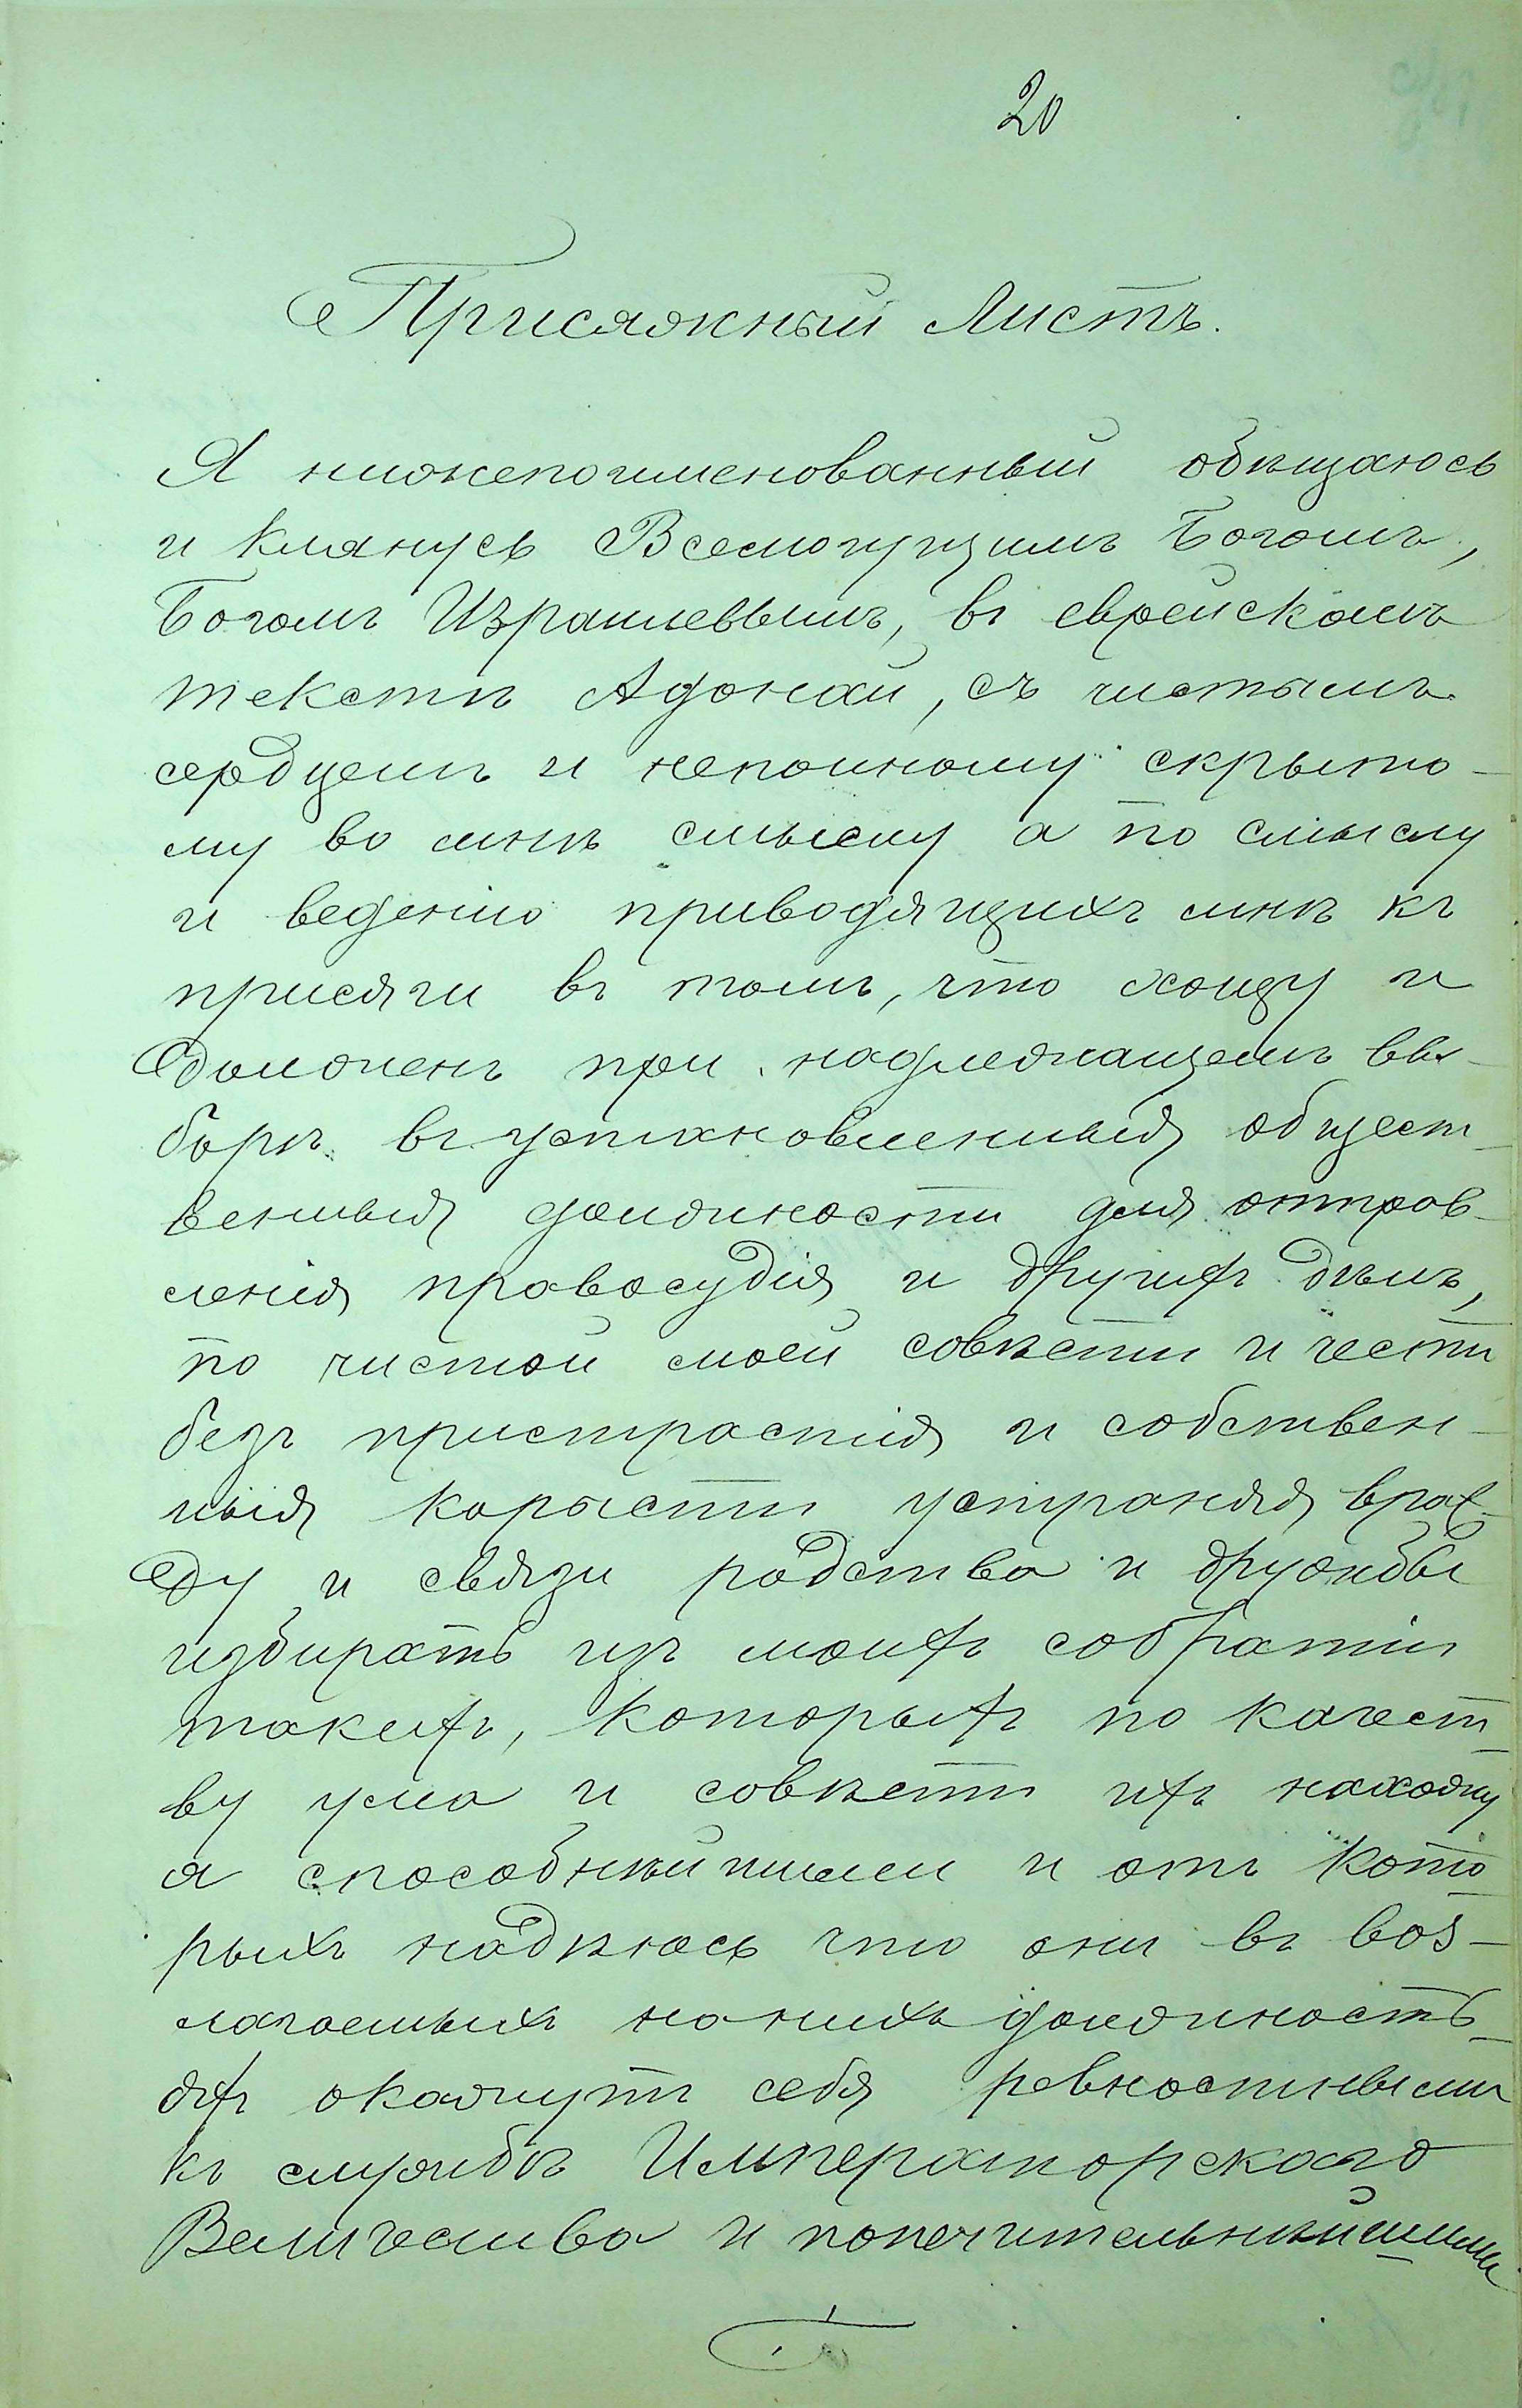 20
Присяжный Листъ.
Я нижепоименованный обѣщаюсь
и клянусь Всемогущимъ Богомъ,
Богомъ Израилевымъ, въ еврейскомъ
текстѣ Адонаи, съ чистымъ
сердцемъ и непоиному скрыто-
му во мнѣ смыслу а по смыслу
и веденію приводящихъ мнѣ къ
присяги въ томъ, что хощу и
долженъ при надлежащемъ вы-
борѣ въ установленныя общест-
венныя должности для отправ-
ленія правосудія и другихъ дѣлъ,
по чистой моей совѣсти и чести
безъ пристрастія и собствен-
ныя корысти устраняя враж-
ду и связи родства и дружбы
избирать изъ моихъ собратій
такихъ, которыхъ по качест-
ву ума и совѣсти ихъ нахожу
я способнѣйшими и отъ кото-
рыхъ надѣюсь что они въ воз-
лагаемыхъ на нихъ должность-
яхъ окажутъ себя ревностными
къ службѣ Императорскаго
Величества и попечительнѣйшими